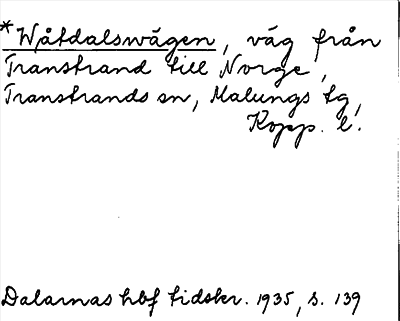 *Wåtdalswägen, väg från
Transtrand till Norge,
Transtrands sn, Malungs tg,
Kopp. l.
Dalarnas hbf tidskr. 1935, s. 139